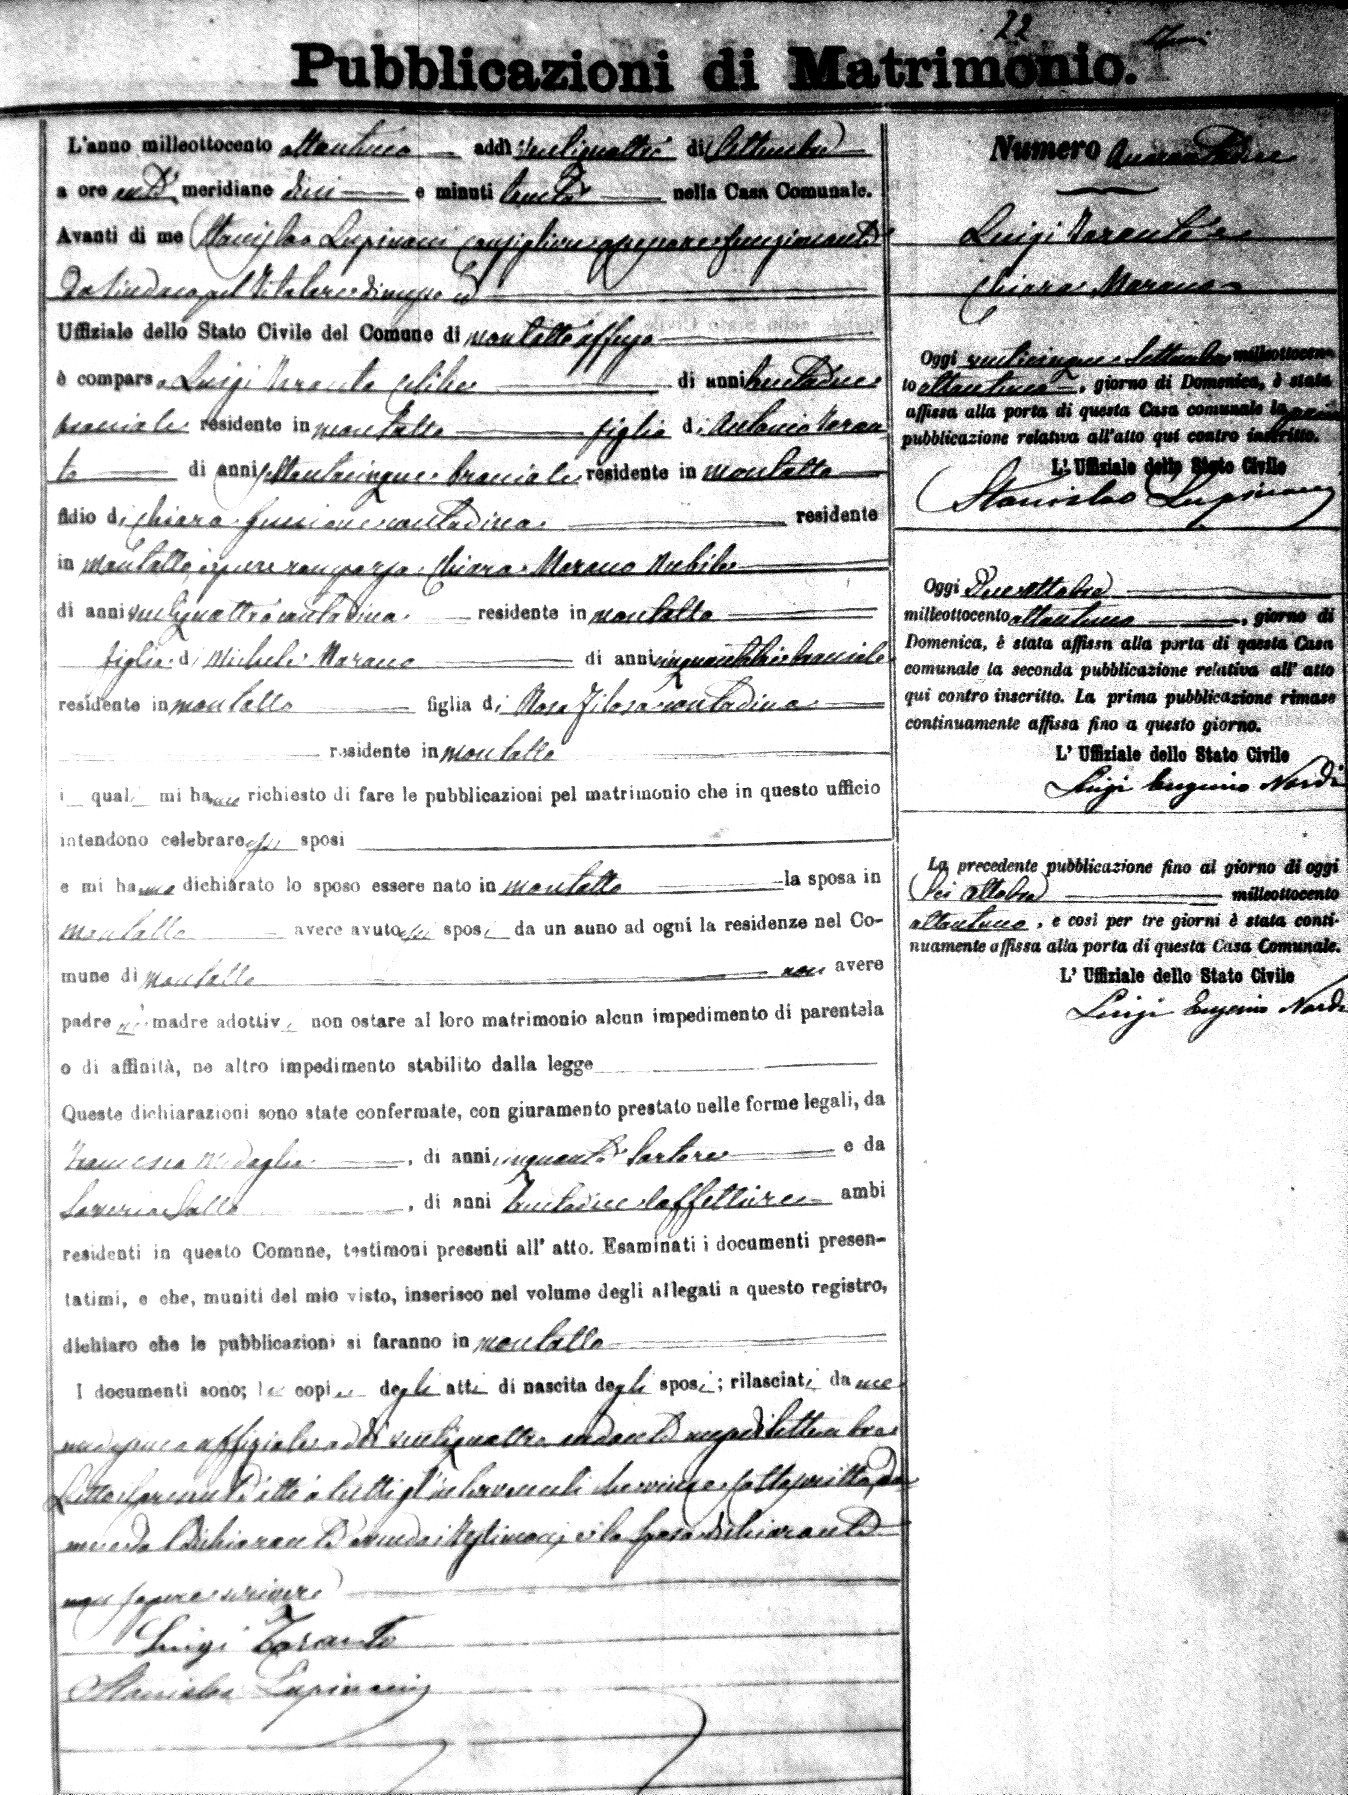 22
Pubblicazioni di Matrimonio.
L'anno milleottocento ottantuno addì ventiquattro di Settembre
a ore anti meridiane dieci e minuti trenta nella Casa Comunale.
Avanti di me Stanislao Lupinacci consigliere assessore funzionante
da Sindaco pel titolare
Uffiziale dello Stato Civile del Comune di Montalto Uffugo
è comparso Luigi Taranto celibe di anni trentadue
bracciale residente in Montalto figlio di Antonio Taran
to di anni settantacinque bracciale residente in Montalto
fidio di Chiara contadina residente
in Montalto, è pure comparsa Chiara Marano Nubile
di anni ventiquattro contadina residente in Montalto
figlia di Michele Marano di anni cinquantatrè bracciale
residente in Montalto figlia di Rosa Filosa contadina
residente in Montalto
i quali mi hanno richiesto di fare le pubblicazioni pel matrimonio che in questo ufficio
intendono celebrare essi sposi
e mi hanno dichiarato lo sposo essere nato in Montalto la sposa in
Montalto avere avuto essi sposi da un anno ad ogni la residenze nel Co-
mune di Montalto non avere
padre nè madre adottivi non ostare al loro matrimonio alcun impedimento di parentela
o di affinità, ne altro impedimento stabilito dalla legge
Queste dichiarazioni sono state confermate, con giuramento prestato nelle forme legali, da
Francesco, di anni cinquanta Sartore e da
Saverio Gallo, di anni trentadue Caffettiere ambi
residenti in questo Comune, testimoni presenti all' atto. Esaminati i documenti presen-
tatimi, e che, muniti del mio visto, inserisco nel volume degli allegati a questo registro,
dichiaro che le pubblicazioni si faranno in Montalto
I documenti sono; le copie degli atti di nascita degli sposi; rilasciati da me
medesimo uffiziale addì ventiquattro andante mese di Settembre
Letto il presente atto a tutti gl'intervenuti che viene sottoscritto da
me e dal dichiarante avendo i testimoni, e la sposa dichiarante
non sapere scrivere
Luigi Taranto
Stanislao Lupinacci
Numero Quarantadue
Luigi Taranto e
Chiara Marano
Oggi venticinque Settembre milleottocen-
to ottantuno, giorno di Domenica, è stata
affissa alla porta di questa Casa comunale la prima
pubblicazione relativa all'atto qui contro inscritto.
L' Uffiziale dello Stato Civile
Stanislao Lupinacci
Oggi Due Ottobre
milleottocento ottantuno, giorno di
Domenica, è stata affissa alla porta di questa Casa
comunale la seconda pubblicazione relativa all' atto
qui contro inscritto. La prima pubblicazione rimase
continuamente affissa fino a questo giorno.
L' Uffiziale dello Stato Civile
Luigi Eugenio Nardi
La precedente pubblicazione fino al giorno di oggi
Sei Ottobre milleottocento
ottantuno, e così per tre giorni è stata conti-
nuamente affissa alla porta di questa Casa Comunale.
L' Uffiziale dello Stato Civile
Luigi Eugenio Nardi